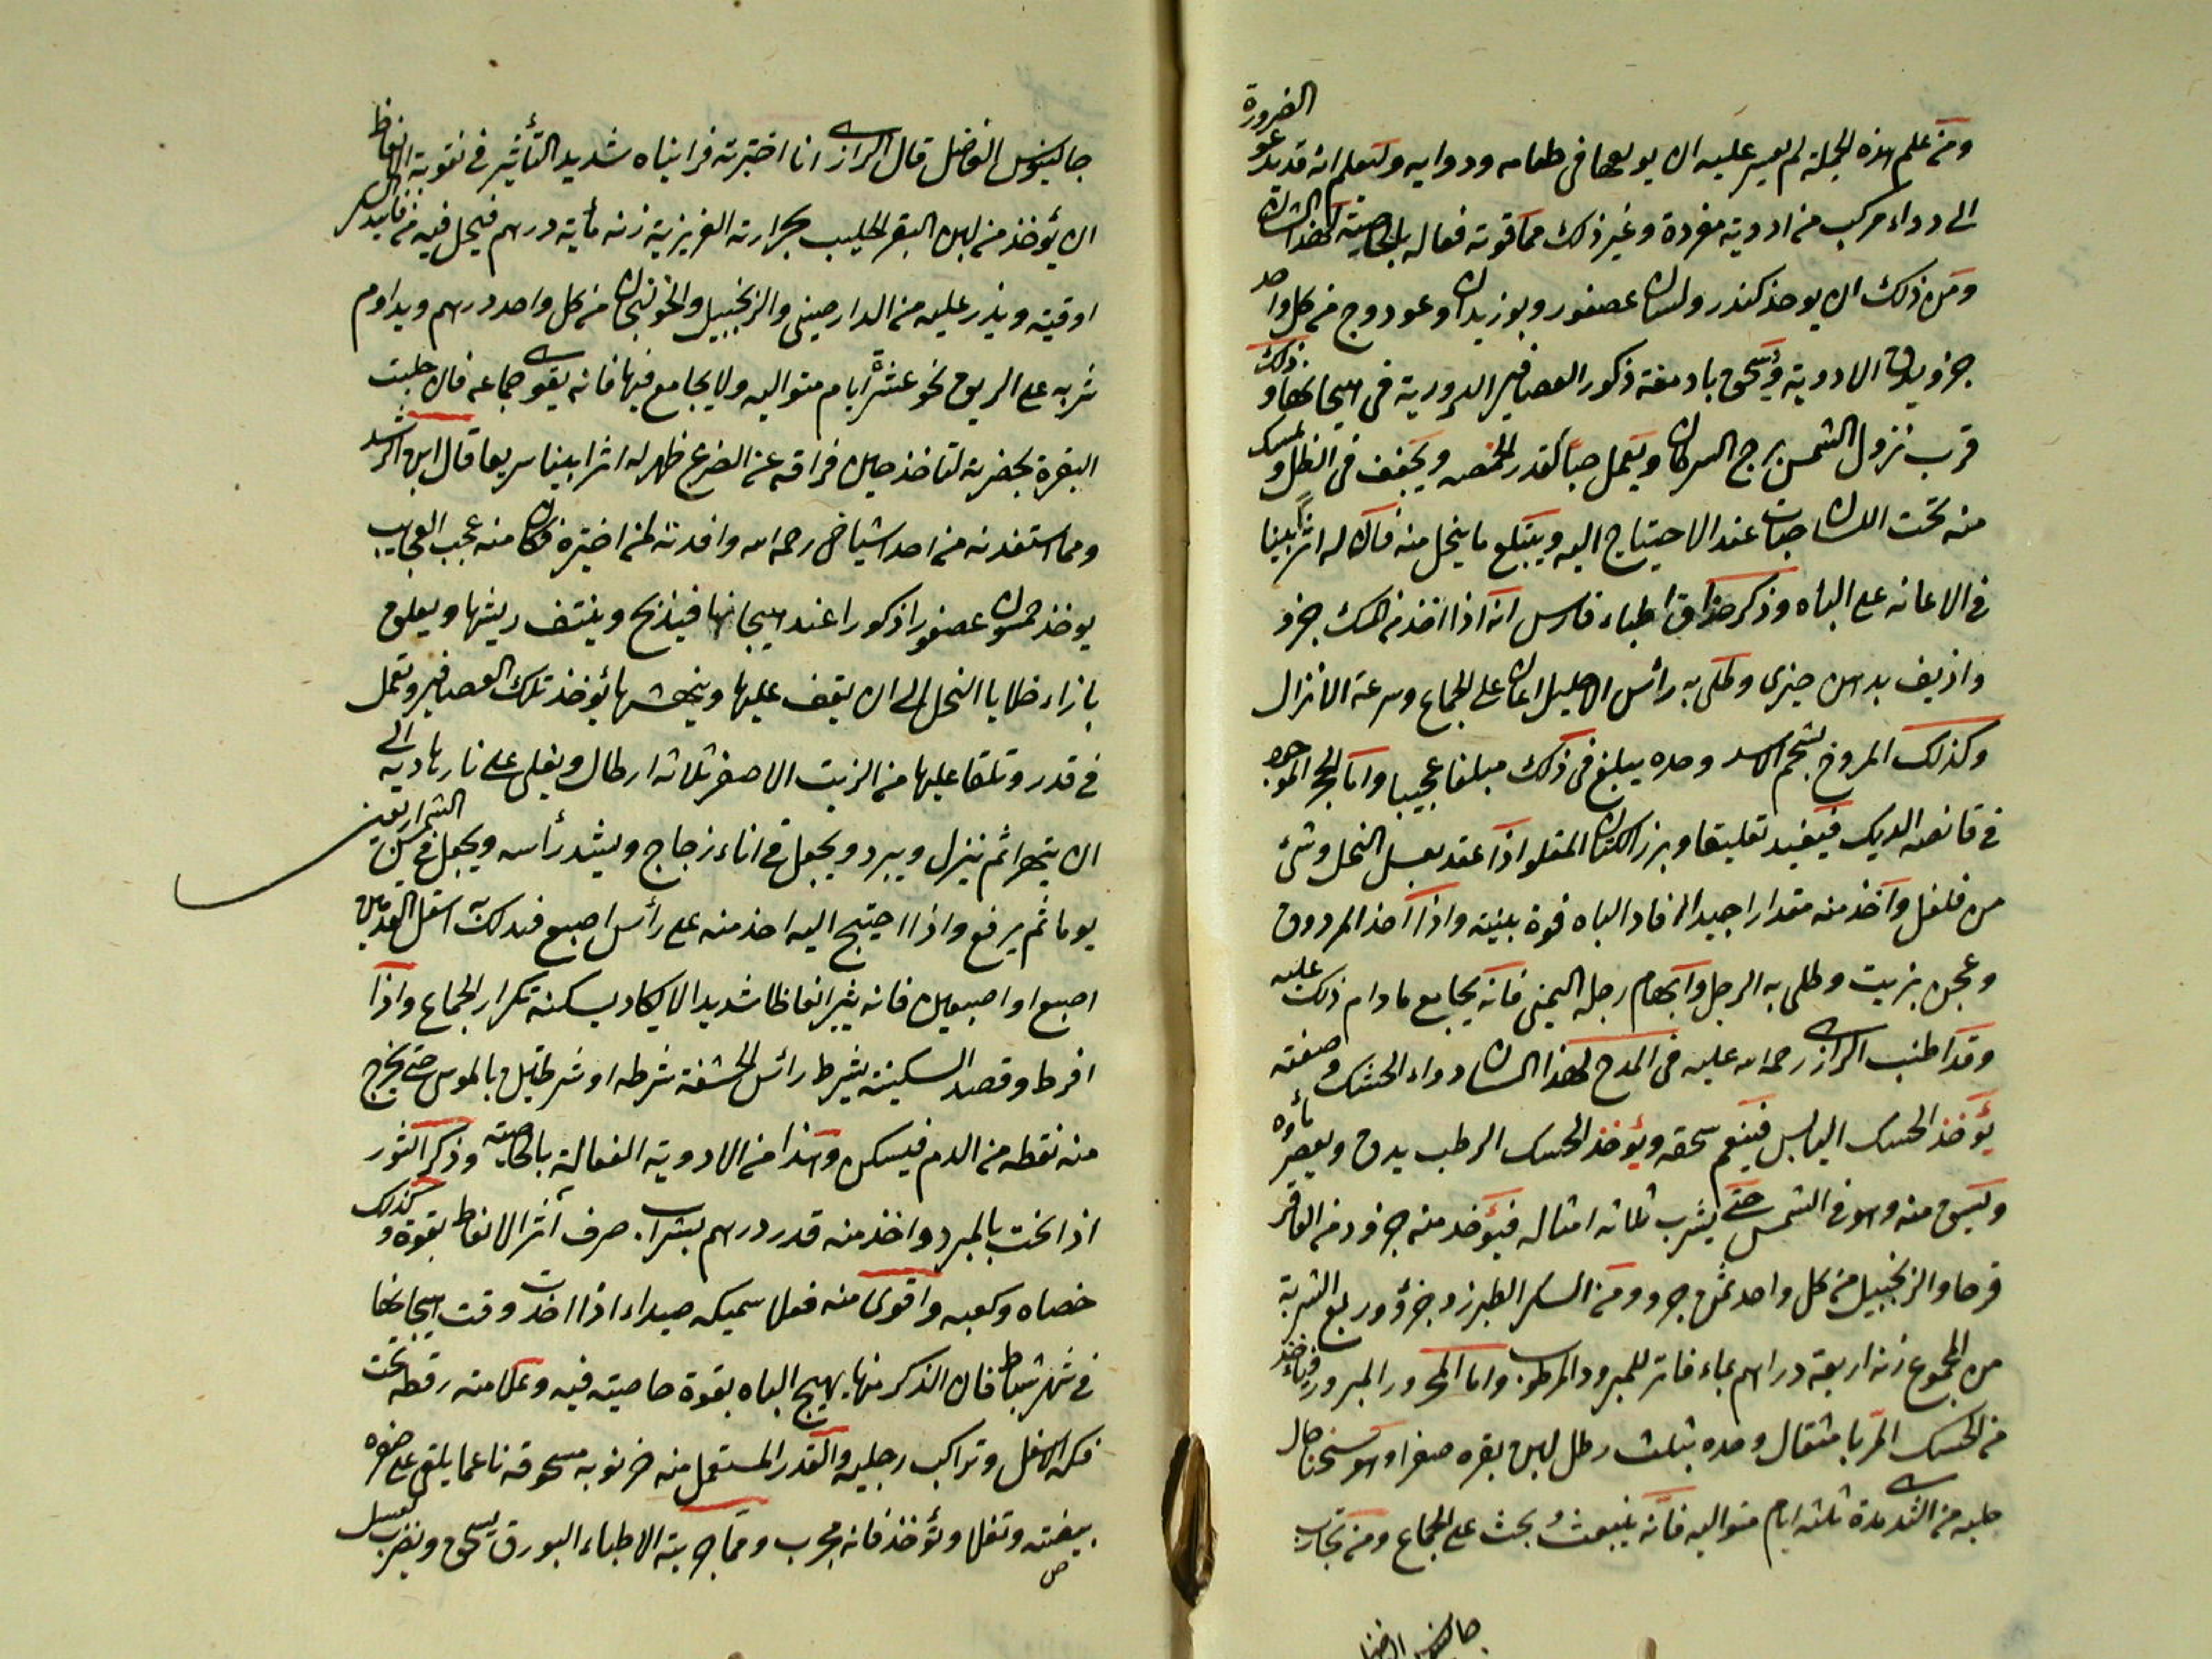 ومن علم هذه الجملة لم يعسر عليه ان يودعها فى طعامه ودوايه وليعلم انه قد يدعو الضرورة
الى دواء مركب من ادوية مفردة وغير ذلك مما قوته فعاله بالخاصية لهذا الشان
ومن ذلك ان يوخذ كندر ولسان عصفور وبوزيدان وعود وج من كل واحد
جزو يدق الادوية ويسحق بادمغة ذكور العصافير الدورية فى هيجانها وذلك
قرب نزول الشمس برج السرطان ويعمل حبا كقدر الحمص ويجفف فى الظل ويمسك
منه تحت اللسان حبات عند الاحتياج اليه ويبتلع ما ينحل منه فان له اثرا بينا
فى الاعانة على الباه وذكر حذاق اطباء فارس انه اذا اخذ من المسك جزو
واذيف بدهن خيرى وطلى به رأس الاحليل اعان على الجماع وسرعة الانزال
وكذلك المروخ بشحم الاسد وحده يبلغ فى ذلك مبلغا عجيبا واما الحجر الموجود
فى قانصة الديك فيفيد تعليقا وبزر الكتان المقلو اذا عقد بعسل النحل وشئ
من فلفل واخذ منه مقدارا جيدا افاد الباه قوة بينة واذا اخذ المردوق
وعجن بزيت وطلى به الرجل وابهام رجله اليمنى فانه يجامع ما دام ذلك عليه
وقد اطنب الرازى رحمه الله عليه فى المدح لهذا الشان دواء الحسك وصفته
يؤخذ الحسك اليابس فينعم سحقه ويؤخذ الحسك الرطب يدق ويعصر ماؤه
ويسقى منه وهو فى الشمس حتى يشرب ثلاثة امثاله فيؤخذ منه جزو ومن العاقر
قرحا والزنجبيل من كل واحد ثمن جزو ومن السكر الطبرزد جزؤ وربع الشربة
من المجموع زنة اربعة دراهم بماء فاتر للمبرود المرطوب واما المحرور المبرور فياخذ
من الحسك المربا مثقال وحده بثلث رطل لبن بقره صفرا وهو سخن حال
حلبه من الثدى مدة ثلثة ايام متواليه فانه ينبعث بحث على الجماع ومن تجارب
جالينوس الفاضل
جالينوس الفاضل قال الرازى انا اختبرته فرايناه شديد التأثير فى تقوية الانعاظ
ان يؤخذ من لبن البقر الحليب بحرارته الغريزية زنة مأية درهم فيحل فيه من فانيد السكر
اوقية ويذر عليه من الدارصينى والزنجبيل والخولنجان من كل واحد درهم ويداوم
شربه على الريق نحو عشرة ايام متواليه ولا يجامع فيها فانه يقوى جماعه فان حلبت
البقرة بحضرته لتاخذ حين فراقه عن الضرع ظهر له اثرا بينا سريعا قال ابن الرشد
ومما استفدته من احد اشياخى رحمه الله وافدته لمن اختبره فكان منه عجب العجايب
يوخذ خمسون عصفورا ذكورا عند هيجانها فيذبح وينتف ريشها ويعلق
بازاء خلايا النحل الى ان يقف عليها وينهشها يؤخذ تلك العصافير وتعمل
فى قدر وتلقا عليها من الزيت الاصفر ثلاثة ارطال ويغلى على نار هادية الى
ان يتهرا ثم ينزل ويبرد ويجعل فى اناء زجاج ويشد رأسه ويجعل فى الشمس اربعين
يوما ثم يرفع واذا احتيج اليه اخذ منه على رأس اصبع فيدلك به اسفل القدمين
اصبع او اصبعين فانه يثير انعاظا شديدا لا يكاد يسكنه تكرار الجماع واذا
افرط وقصد السكينة يشرط رائس الحشفة شرطه او شرطتين بالموس حتى يخرج
منه نقطه من الدم فيسكن وهذا من الادوية الفعالة بالخاصية وذكر الثور
اذا نحت بالمبرد واخذ منه قدر درهم بشراب صرف أثر الانعاظ بقوة وكذلك
خصاه وكعبه واقوى منه فعلا سميكه صيداء اذا اخذت وقت هيجانها
فى شهر شباط فان الذكر منها يهيج الباه بقوة خاصيته فيه وعلامته رقطه تحت
فكه الاسفل وتراكب رجليه والقدر المستعمل منه خرنوبه مسحوقه ناعما يلقى على صفره
بيضة وتغلا وتؤخذ فانه مجرب ومما جربته الاطباء البورق يسحق ويضرب بعسل